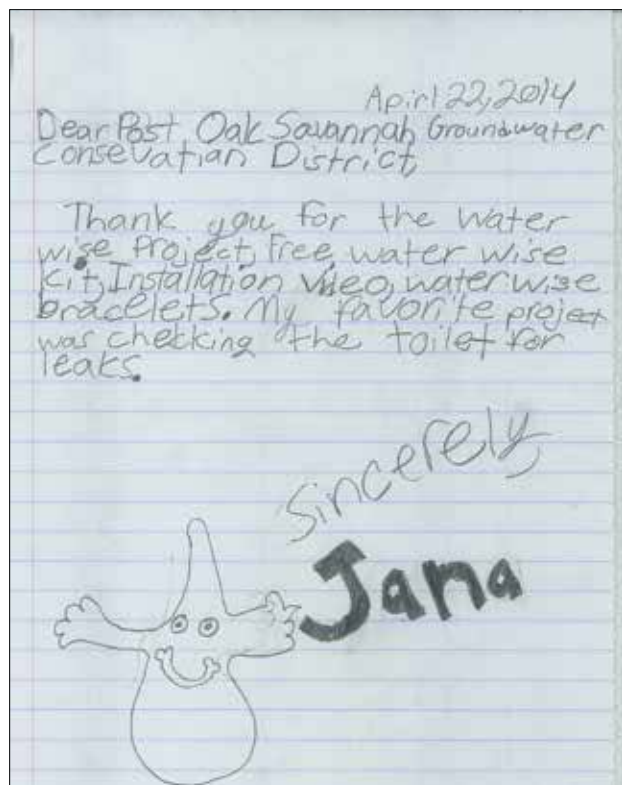 Apirl 22, 2014
Dear Post Oak Savannah Groundwater
Consevation District,
Thank you for the water
wise project, free water wise
kit, Installation video, water wise
bracelets. My favorite project
was checking the toilet for
leaks.
Sincerely,
Jana